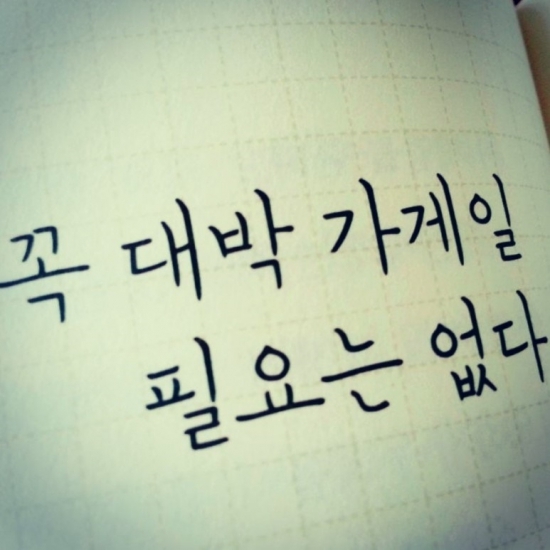 꼭 대박 가게일
필요는 없다